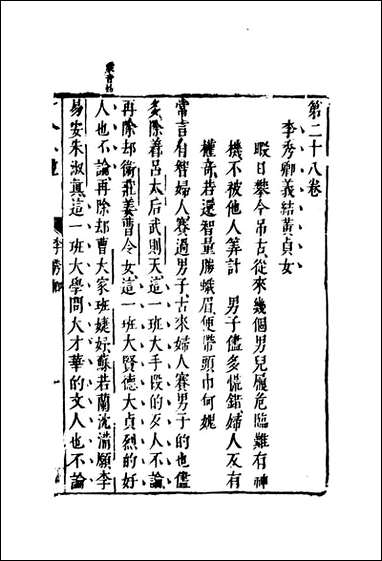 第二十八卷
李秀卿義結黃貞女
暇日攀今吊古從來幾個男兒履危臨難有神
機不被他人筭計　男子儘多慌錯婦人反有
權奇若還智量勝蛾眉便帶頭巾何媿
常言有智婦人賽過男子古來婦人賽男子的也儘
多除着呂太后武則天這一班大手段的歹人不論
再除却衛莊姜曹令女這一班大賢德大貞烈的好
家音姑
人也不論再除却曹大家班婕妤蘇若蘭沈滿願李
易安朱淑真這一班大學問大才華的文人也不論
李秀卿